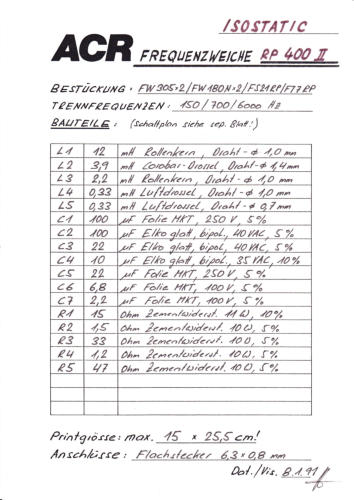 ISOSTATIC
ACR FREQUENZWEICHE RP 400 II
BESTÜCKUNG: FW305×2/FW180N×2/FS21RP/F17RP
TRENNFREQUENZEN: 150/700/6000 Hz
BAUTEILE: (Schaltplan siehe sep. Blatt!)
L1 12 mH Rollenkern, Draht-ϕ 1,0 mm
L2 3,9 mH Corobar-Drossel, Draht-ϕ 1,4 mm
L3 2,2 mH Rollenkern, Draht-ϕ 1,0 mm
L4 0,33 mH Luftdrossel, Draht-ϕ 1,0 mm
L5 0,33 mH Luftdrossel, Draht-ϕ 0,7 mm
C1 100 µF Folie MKT, 250 V, 5%
C2 100 µF Elko glatt, bipol., 40 VAC, 5%
C3 22 µF Elko glatt, bipol., 40 VAC, 5%
C4 10 µF Elko glatt, bipol., 35 VAC, 10%
C5 22 µF Folie MKT, 250 V, 5%
C6 6,8 µF Folie MKT, 100 V, 5%
C7 2,2 µF Folie MKT, 100 V, 5%
R1 15 Ohm Zementwiderst. 11 W, 10%
R2 1,5 Ohm Zementwiderst. 10 W, 5%
R3 33 Ohm Zementwiderst. 10 W, 5%
R4 1,2 Ohm Zementwiderst. 10 W, 5%
R5 47 Ohm Zementwiderst. 10 W, 5%
Printgrösse: max. 15 × 25,5 cm!
Anschlüsse: Flachstecker 6,3×0,8 mm
Dat./Vis. 8.1.91